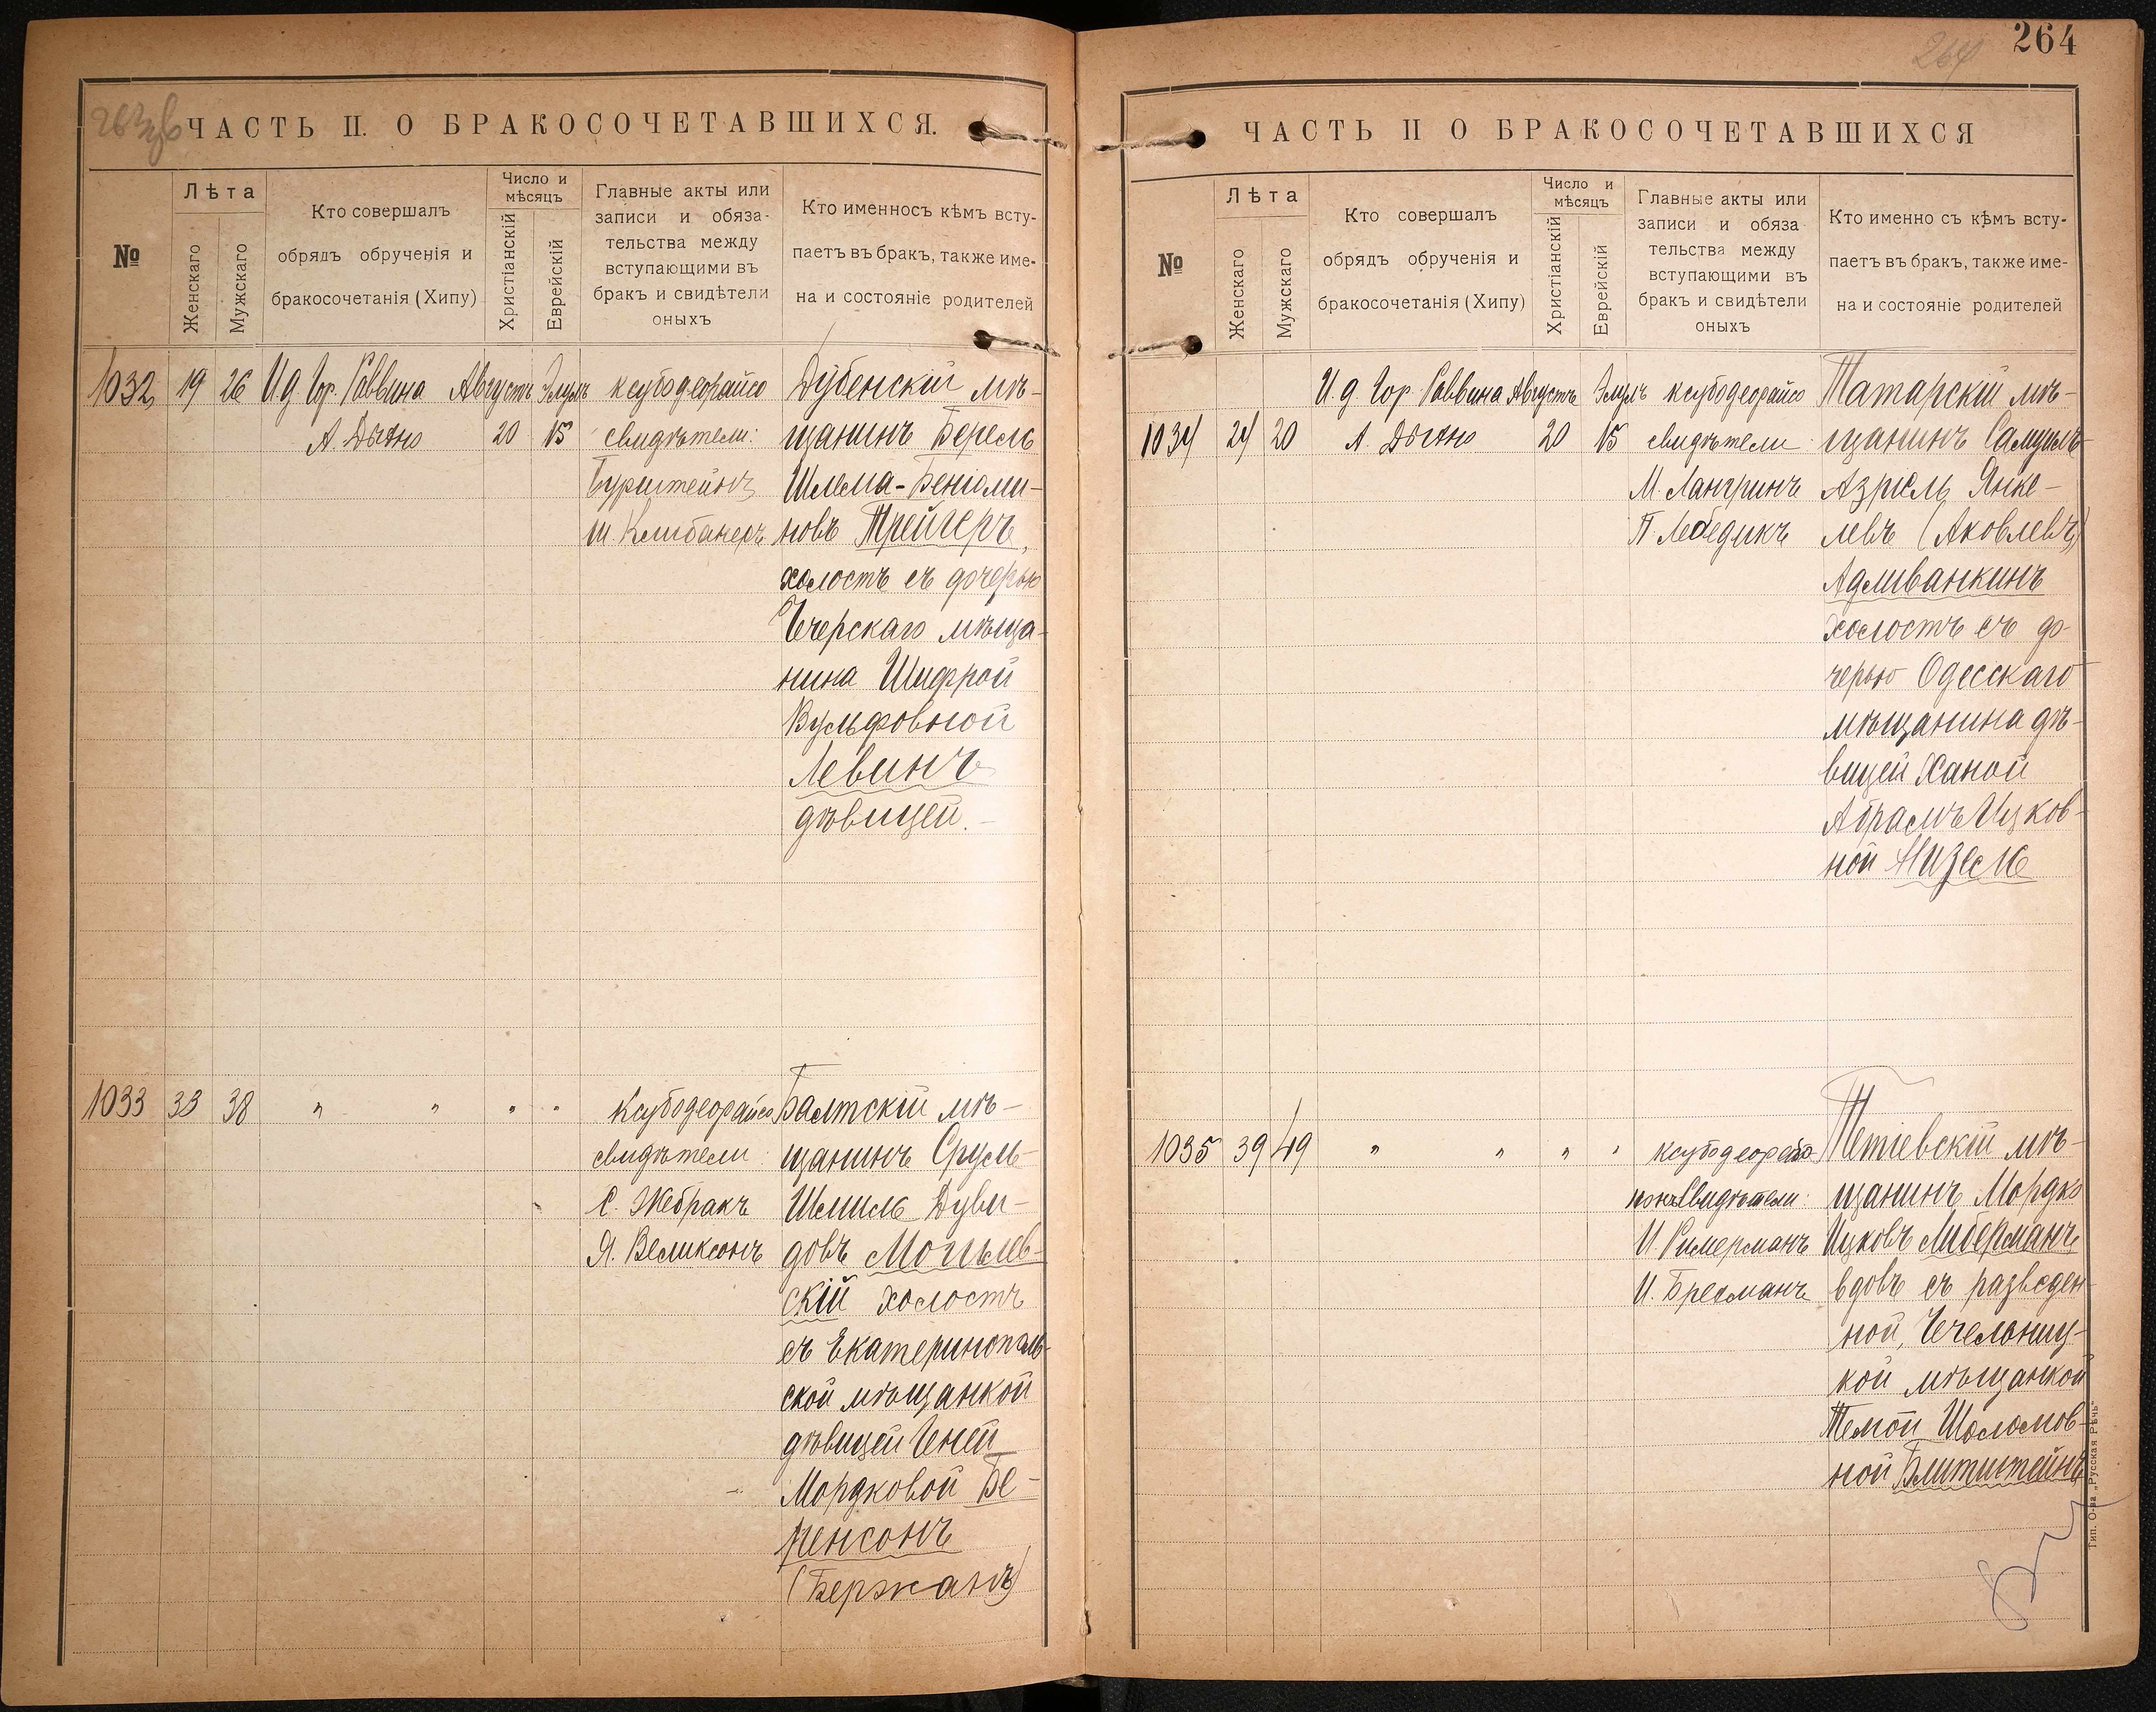 264
264
ЧАСТЬ II. О БРАКОСОЧЕТАВШИХСЯ.
№
Лѣта
Женскаго
Мужскаго
Кто совершалъ
обрядъ обрученія и
бракосочетанія (Хипу)
Число и
мѣсяцъ
Христіанскій
Еврейскій
Главные акты или
записи и обяза-
тельства между
вступающими въ
бракъ и свидѣтели
оныхъ
Кто именносъ кѣмъ всту-
паетъ въ бракъ, также име-
на и состояніе родителей
1032 19 26
И. д. Гор. Раввина
А. Дыхно
Августъ
20
Элулъ
15
ксубодеорайсо
свидѣтели:
Бурштейнъ
Ш. Клибанеръ
Дубенскій мѣ-
щанинъ Берель
Шлема-Беніоми-
новъ Трейгеръ,
холостъ съ дочерью
Чечерскаго мѣща-
нина Шифрой
Вульфовной
Левинъ
дѣвицей.-
1033 33 38
" " " "
Ксубодеорайсо
свидѣтели:
С. Жебракъ
Я. Великсонъ
Балтскій мѣ-
щанинъ Сруль-
Шмиль Дуви-
довъ Могилев-
скій холостъ
съ Екатеринополь-
ской мѣщанкой
дѣвицей Ченей
Мордковой Бе-
ренсонъ
(Бержанъ)
ЧАСТЬ II О БРАКОСОЧЕТАВШИХСЯ
№
Лѣта
Женскаго
Мужскаго
Кто совершалъ
обрядъ обрученія и
бракосочетанія (Хипу)
Число и
мѣсяцъ
Христіанскій
Еврейскій
Главные акты или
записи и обяза
тельства между
вступающими въ
бракъ и свидѣтели
оныхъ
Кто именно съ кѣмъ всту-
паетъ въ бракъ, также име-
на и состояніе родителей
1034 24 20
И. д. Гор. Раввина
А. Дыхно
Августъ
20
Элулъ
15
ксубодеорайсо
свидѣтели:
М. Лангринъ
П. Лебедикъ
Татарскій мѣ-
щанинъ Самуилъ-
Азріель Янке-
левъ (Аковлевъ)
Адливанкинъ
холостъ съ до-
черью Одесскаго
мѣщанина дѣ-
вицей Ханой
Абрамъ Ицков-
ной Низель
1035 39 49
" " " "
ксубодеорабо-
нонъ свидѣтели:
И. Римерманъ
И. Брегманъ
Тетіевскій мѣ-
щанинъ Мордко
Ицковъ Либерманъ
вдовъ съ разведен-
ной, Чечельниц-
кой мѣщанкой
Темой Шоломов-
ной Блитштейнъ
Тип. О-ва „Русская Рѣчь"